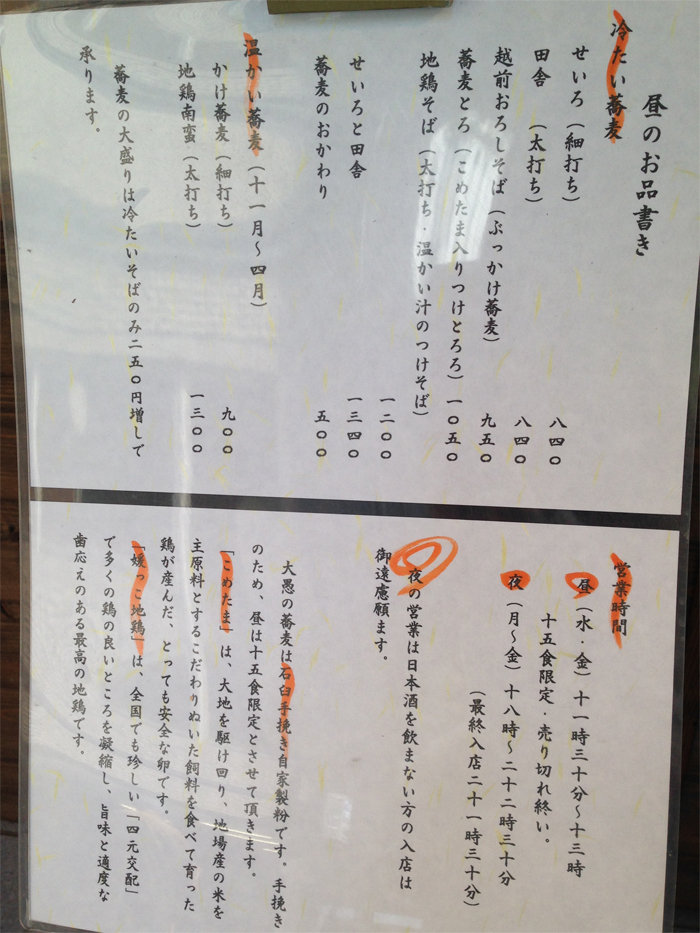 昼のお品書き
冷たい蕎麦
せいろ（細打ち） 八四〇
田舎（太打ち） 八四〇
越前おろしそば（ぶっかけ蕎麦） 九五〇
蕎麦とろ（こめたま入りつけとろろ） 一〇五〇
地鶏そば（太打ち・温かい汁のつけそば）
一二〇〇
せいろと田舎 一三四〇
蕎麦のおかわり 五〇〇
温かい蕎麦（十一月〜四月）
かけ蕎麦（細打ち） 九〇〇
地鶏南蛮（太打ち） 一三〇〇
蕎麦の大盛りは冷たいそばのみ二五〇円増しで
承ります。
営業時間
昼（水・金）十一時三十分〜十三時
十五食限定・売り切れ終い。
夜（月〜金）十八時〜二十二時三十分
（最終入店二十一時三十分）
夜の営業は日本酒を飲まない方の入店は
御遠慮願ます。
大愚の蕎麦は石臼手挽き自家製粉です。手挽き
のため、昼は十五食限定とさせて頂きます。
「こめたま」は、大地を駆け回り、地場産の米を
主原料とするこだわりぬいた飼料を食べて育った
鶏が産んだ、とっても安全な卵です。
「媛っこ地鶏」は、全国でも珍しい「四元交配」
で多くの鶏の良いところを凝縮し、旨味と適度な
歯応えのある最高の地鶏です。